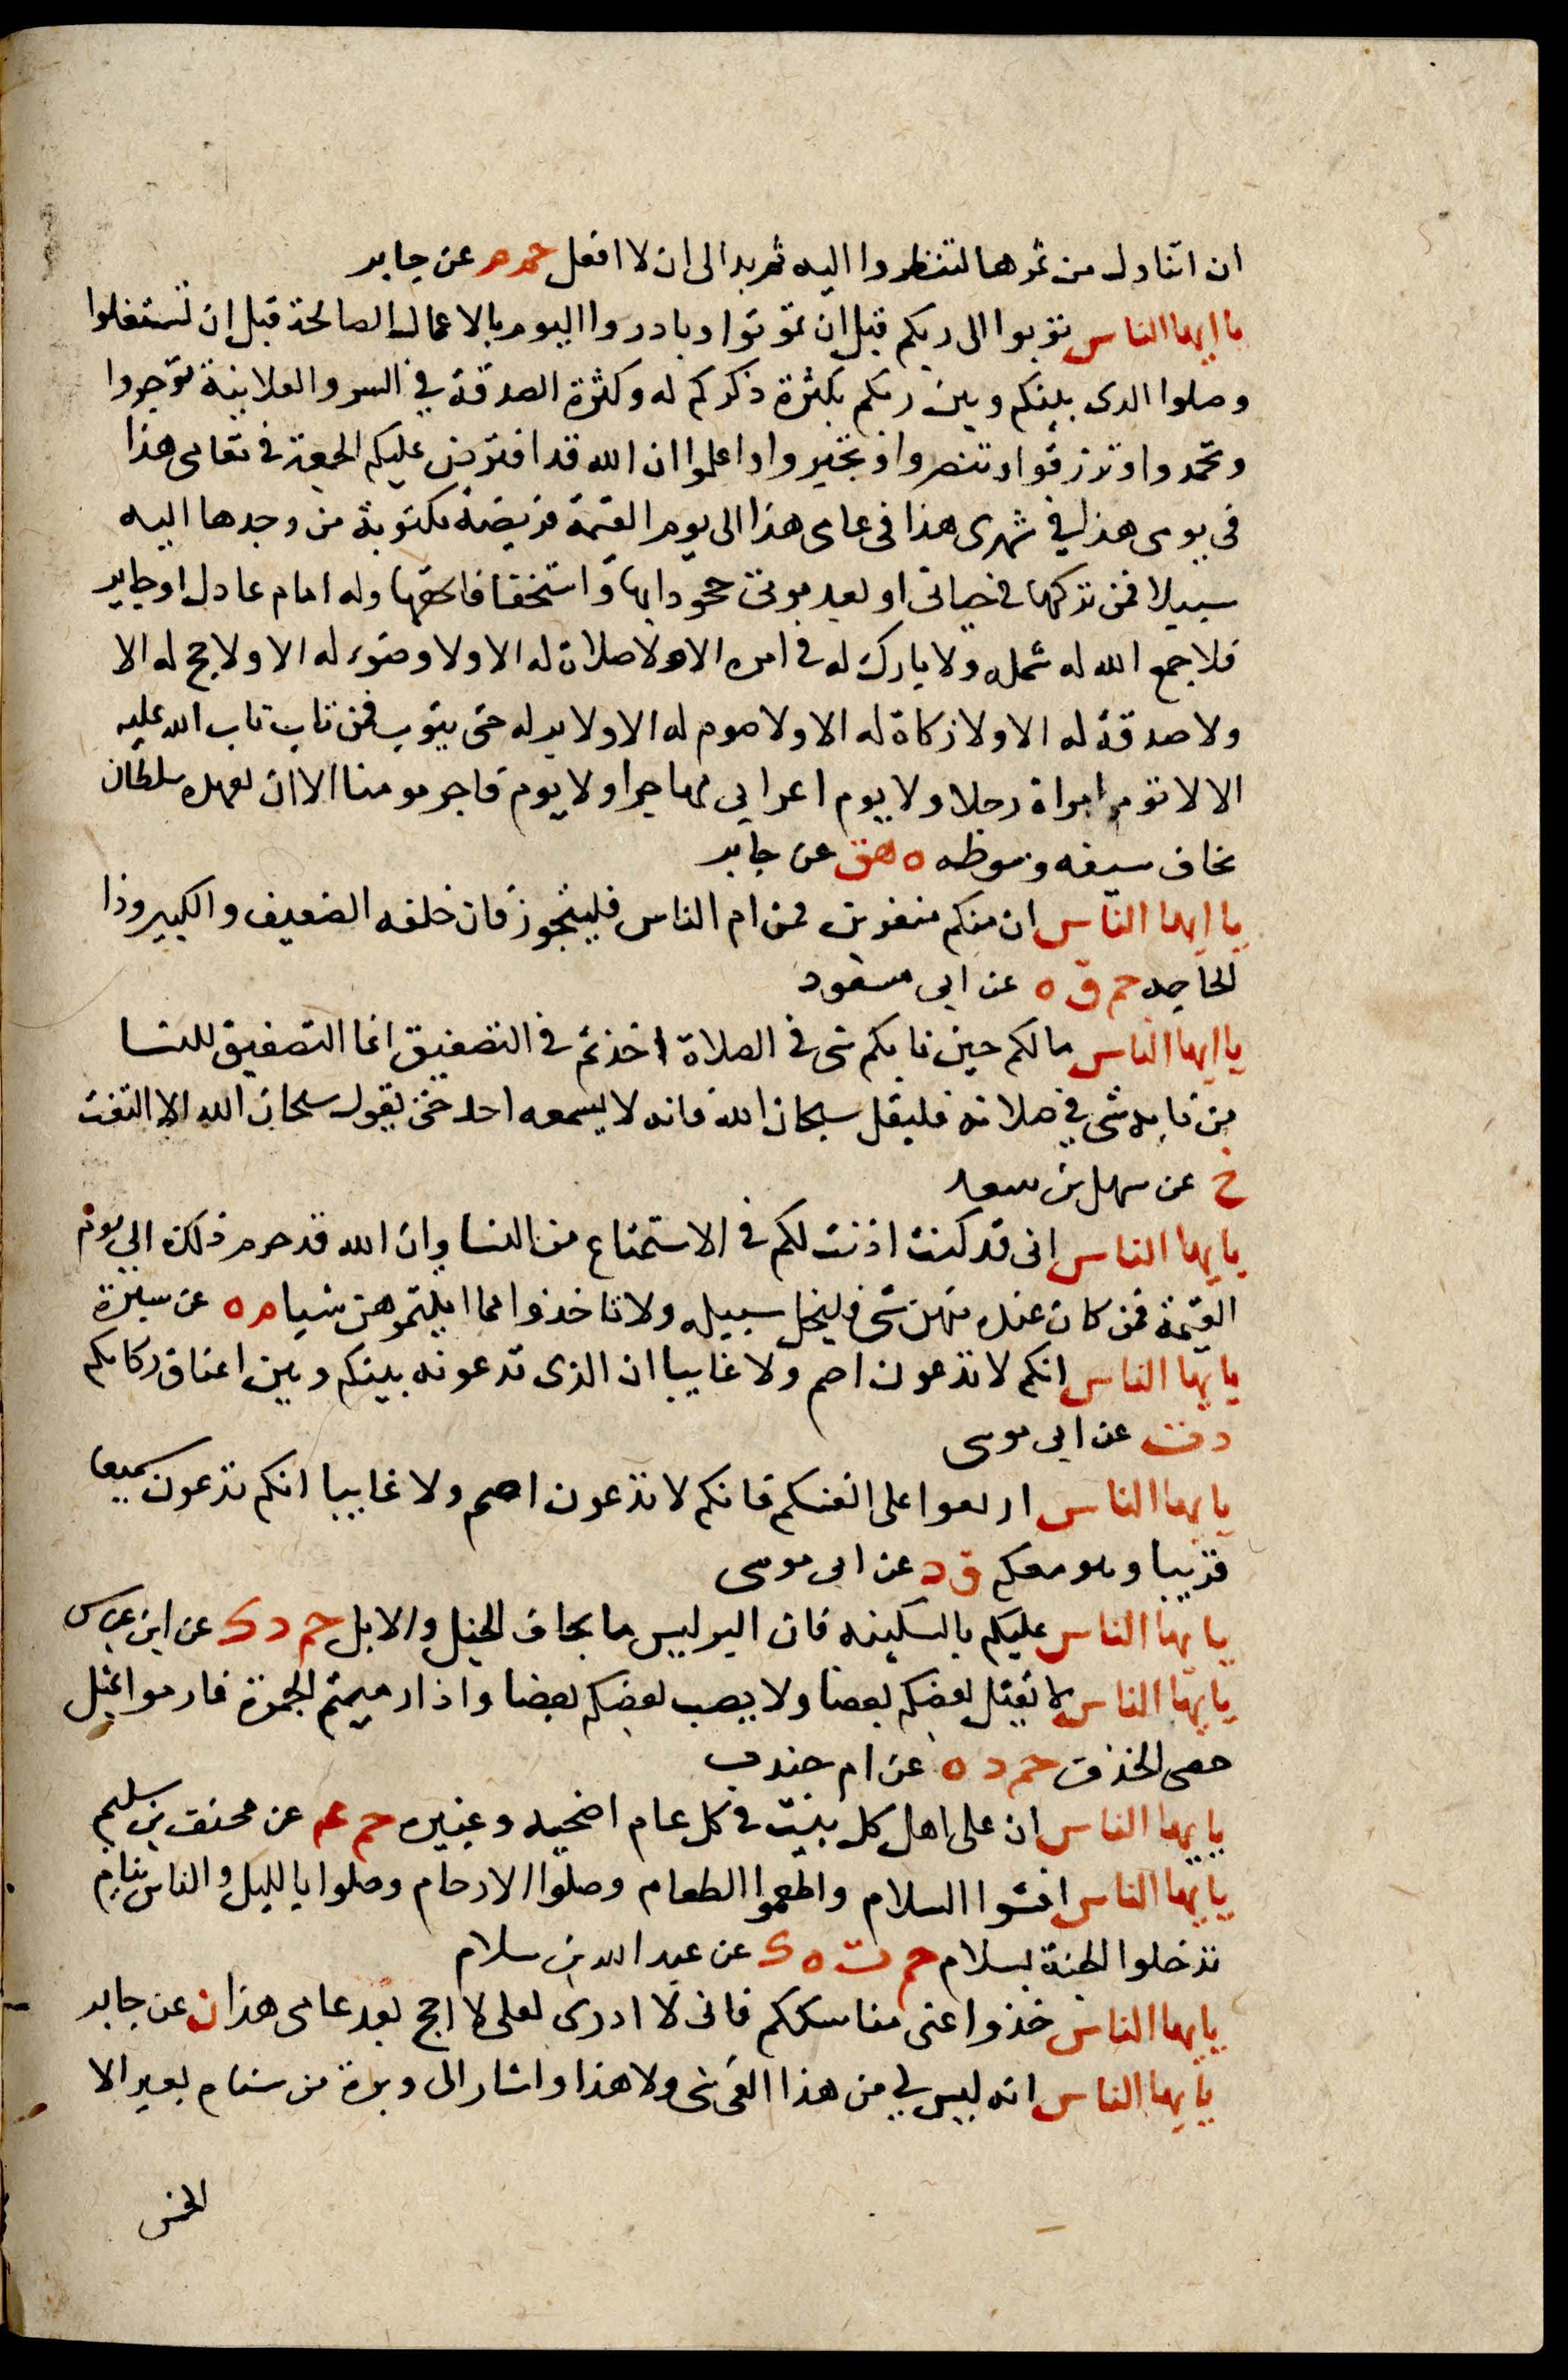 ان اتناول من ثمرها لتنظروا اليه ثم بدالى ان لا افعل حم م عن جابر
يا ايها الناس توبوا الى ربكم قبل ان تموتوا وبادروا اليوم بالاعمال الصالحة قبل ان تشتغلوا
وصلوا الدى بينكم وبين ربكم بكثرة ذكركم له وكثرة الصدقة فى السر والعلانية توجروا
وتحمدوا وترزقوا وتنصروا وتجبروا واعلموا ان الله قد افترض عليكم الجمعة فى مقامى هذا
فى يومى هذا فى شهرى هذا فى عامى هذا الى يوم القيمة فريضة مكتوبة من وجدها اليه
سبيلا فمن تركها فى حياتى او بعد موتى جحودا بها واستخفافا بحقها وله امام عادل او جاير
فلا جمع الله له شمله ولا بارك له فى امره الا ولا صلاة له الا ولا وضوء له الا ولا حج له الا
ولا صدقة له الا ولا زكاة له الا ولا صوم له الا ولا بر له حتى يتوب فمن تاب تاب الله عليه
الا لا تؤمن امراة رجلا ولا يوم اعرابى مهاجرا ولا يوم فاجر مومنا الا ان يقهره سلطان
يخاف سيفه وسوطه ه هق عن جابر
يا ايها الناس ان منكم منفرين فمن ام الناس فليتجوز فان خلفه الضعيف والكبير وذا
الحاجه حم ق ه عن ابى مسعود
يا ايها الناس مالكم حين نابكم شى فى الصلاة اخذتم فى التصفيق انما التصفيق للنسا
من نابه شى فى صلاته فليقل سبحان الله فانه لا يسمعه احد حين يقول سبحان الله الا التفت
خ عن سهل بن سعد
يايها الناس انى قد كنت اذنت لكم فى الاستمتاع من النسا وان الله قد حرم ذلك الى يوم
القيمة فمن كان عنده منهن شى فليخل سبيله ولا تاخذوا مما اتيتموهن شيا م ه عن سبرة
يايها الناس انكم لا تدعون اصم ولا غايبا ان الذى تدعونه بينكم وبين اعناق ركابكم
د ت عن ابى موسى
يايها الناس اربعوا على انفسكم فانكم لا تدعون اصم ولا غايبا انكم تدعون سميعا
قريبا وهو معكم ق د عن ابى موسى
يايها الناس عليكم بالسكينه فان البر ليس بايجاف الخيل والابل حم د ك عن ابن عباس
يايها الناس لا يقتل بعضكم بعضا ولا يصب بعضكم بعضا واذا رميتم الجمرة فارموا بمثل
حصى الخذف حم د ه عن ام جندب
يايها الناس ان على اهل كل بيت فى كل عام اضحيه وعتيره حم عم عن مخنف بن سليم
يايها الناس افشوا السلام واطعموا الطعام وصلوا الارحام وصلوا بالليل والناس نيام
تدخلوا الجنة بسلام حم ت ه ك عن عبد الله بن سلام
يايها الناس خذوا عنى مناسككم فانى لا ادرى لعلى لا احج بعد عامى هذا ن عن جابر
يايها الناس انه ليس لى من هذا الفى شى ولا هذا واشار الى وبرة من سنام بعير الا
الخمس